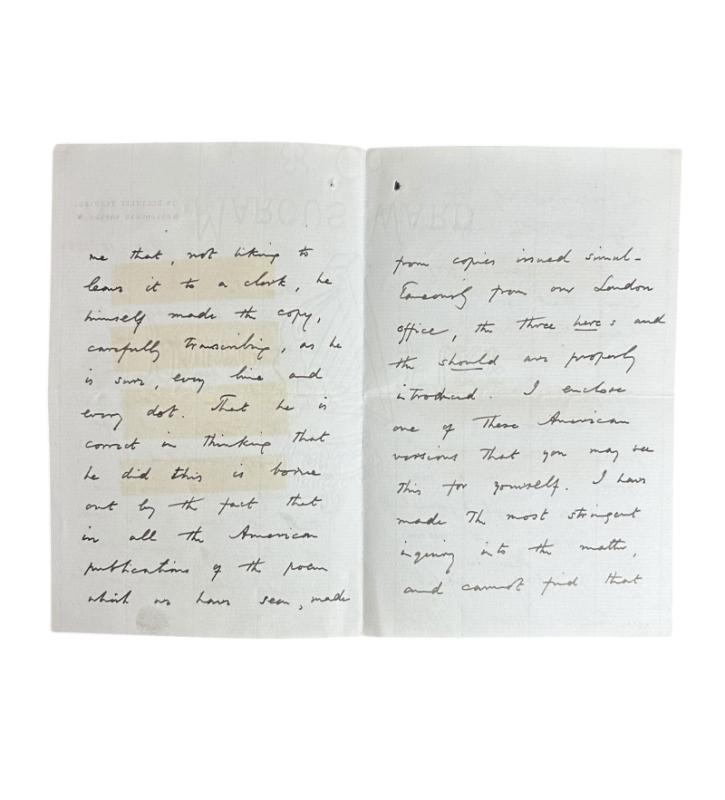 me that, not liking to
leave it to a clerk, he
himself made the copy,
carefully transcribing, as he
is sure, every line and
every dot. That he is
correct in thinking that
he did this is borne
out by the fact that
in all the American
publications of the poem
which we have seen, made
from copies issued simul-
taneously from our London
office, the three heres and
the should are properly
introduced. I enclose
one of these American
versions that you may see
this for yourself. I have
made the most stringent
inquiry into the matter,
and cannot find that
MARCUS WARD